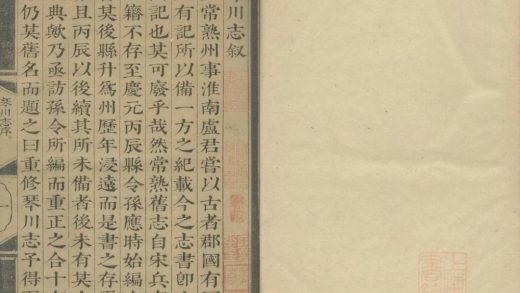 川志叙
常熟州事淮南盧君嘗以古者郡國有
有記所以備一方之紀載今之志書卽
也其可廢乎哉然常熟舊志自宋兵
籍不存至慶元丙辰縣令孫應時始編
其後縣升爲州歷年浸遠而是書之存
且丙辰以後續其所未備者後未有其
典歟乃亟訪孫令所編而重正之合十
仍其舊名而題之曰重修琴川志予得
琴川志序
一